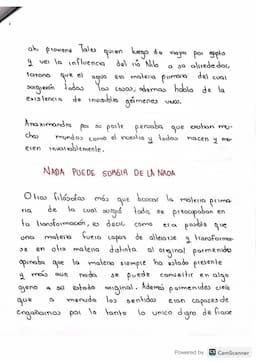 ahi proviene Tales quien luego de viajar por egipto
y ver la influencia del río Nilo a su alrededor,
razono que el agua era materia primara del cual
surgieron todas las cosas, ademas hablo de la
existencia de invisibles gérmenes vivos.
Anaximandro por su parte pensaba que existian mu-
chos mundos como el nuestro y todos nacen y mu-
eren inevitablemente.
NADA PUEDE SURGIR DE LA NADA
Otros filósofos más que buscar la materia prima-
ria de la cual surgió todo se preocupaban en
la transformación, es decir como era posible que
una materia fuera capas de alterarse y transformar-
se en otra materia distinta al original parmenides
opinaba que la materia siempre ha estado presente
y más aun nada se puede convertir en algo
ajeno a su estado original. Ademas parmenides creia
que a menudo los sentidos eran capaces de
engañarnos por lo tanto lo unico digno de fiarse
Powered by CS CamScanner